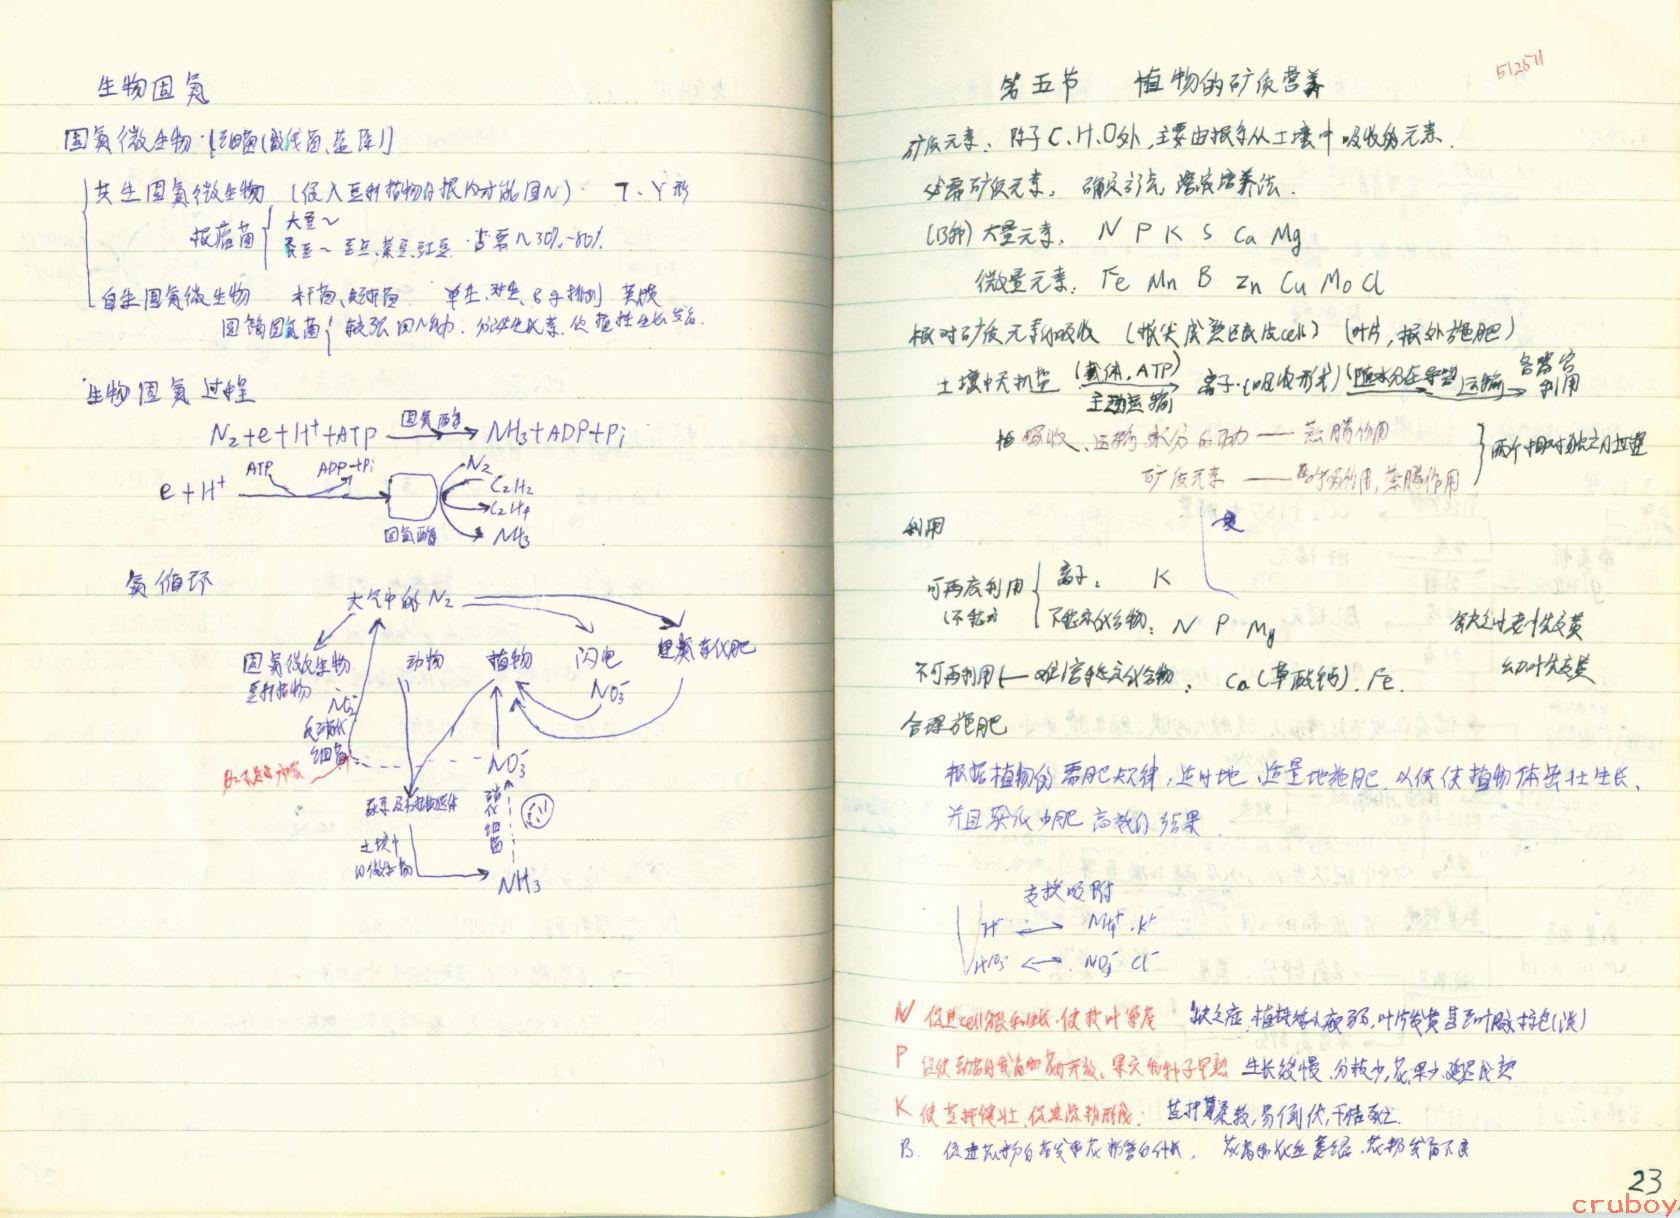 生物固氮
固氮微生物·[细菌(放线菌、蓝藻)]
共生固氮微生物 (侵入豆科植物的根内才能固N) T、Y形
根瘤菌 大豆~
蚕豆~ 蚕豆、菜豆、豇豆. 占需N 30%-80%
自生固氮微生物 杆菌、短杆菌 单生、对生、8字排列 荚膜
圆褐固氮菌 较强固N能力. 分泌生长素. 促植株生长发育.
生物固氮过程
N2+e+H⁺+ATP 固氮酶 NH3+ADP+Pi
ATP ADP+Pi N2
e+H⁺ C2H2
C2H4
固氮酶 NH3
氮循环
大气中的N2
固氮微生物 动物 植物 闪电 氮素化肥
豆科植物 NO3⁻
NO2⁻
反硝化
细菌 NO3⁻
硝化细菌
土壤中
的微生物 NH3
512511
第五节 植物的矿质营养
矿质元素: 除了C、H、O外,主要由根系从土壤中吸收的元素.
必需矿质元素: 确定方法: 溶液培养法.
(13种) 大量元素: N P K S Ca Mg
微量元素: Fe Mn B Zn Cu Mo Cl
根对矿质元素的吸收 (根尖成熟区表皮cell) (叶片,根外施肥)
土壤中无机盐 (载体,ATP) 主动运输 离子(吸收形式) (随水分在导管)运输 各器官利用
吸收、运输水分的动力 —— 蒸腾作用
矿质元素 —— 呼吸作用,蒸腾作用 两个相对独立的过程
利用
可再度利用 离子: K
(不稳定) 不稳定化合物: N P Mg 缺乏时老叶先变黄
不可再利用 ← 难溶稳定化合物: Ca(草酸钙). Fe. 幼叶先变黄
合理施肥
根据植物的需肥规律,适时地、适量地施肥,以便使植物体茁壮生长,
并且获得少肥高效的结果.
交换吸附
H⁺ ↔ NH4⁺.K⁺
HCO3⁻ ↔ NO3⁻ Cl⁻
N 促进cell分裂和生长.使枝叶繁茂 缺乏症:植株矮小瘦弱,叶片发黄甚至叶脉棕色(淡)
P 促进幼苗的发育和花的开放,果实的种子早熟 生长缓慢.分枝少,花果少,延迟成熟
K 使茎秆健壮.促进淀粉形成. 茎秆柔软,易倒伏,
B. 促进花粉的萌发和花粉管的伸长. 花药和花丝萎缩.花粉发育不良
23
cruboy